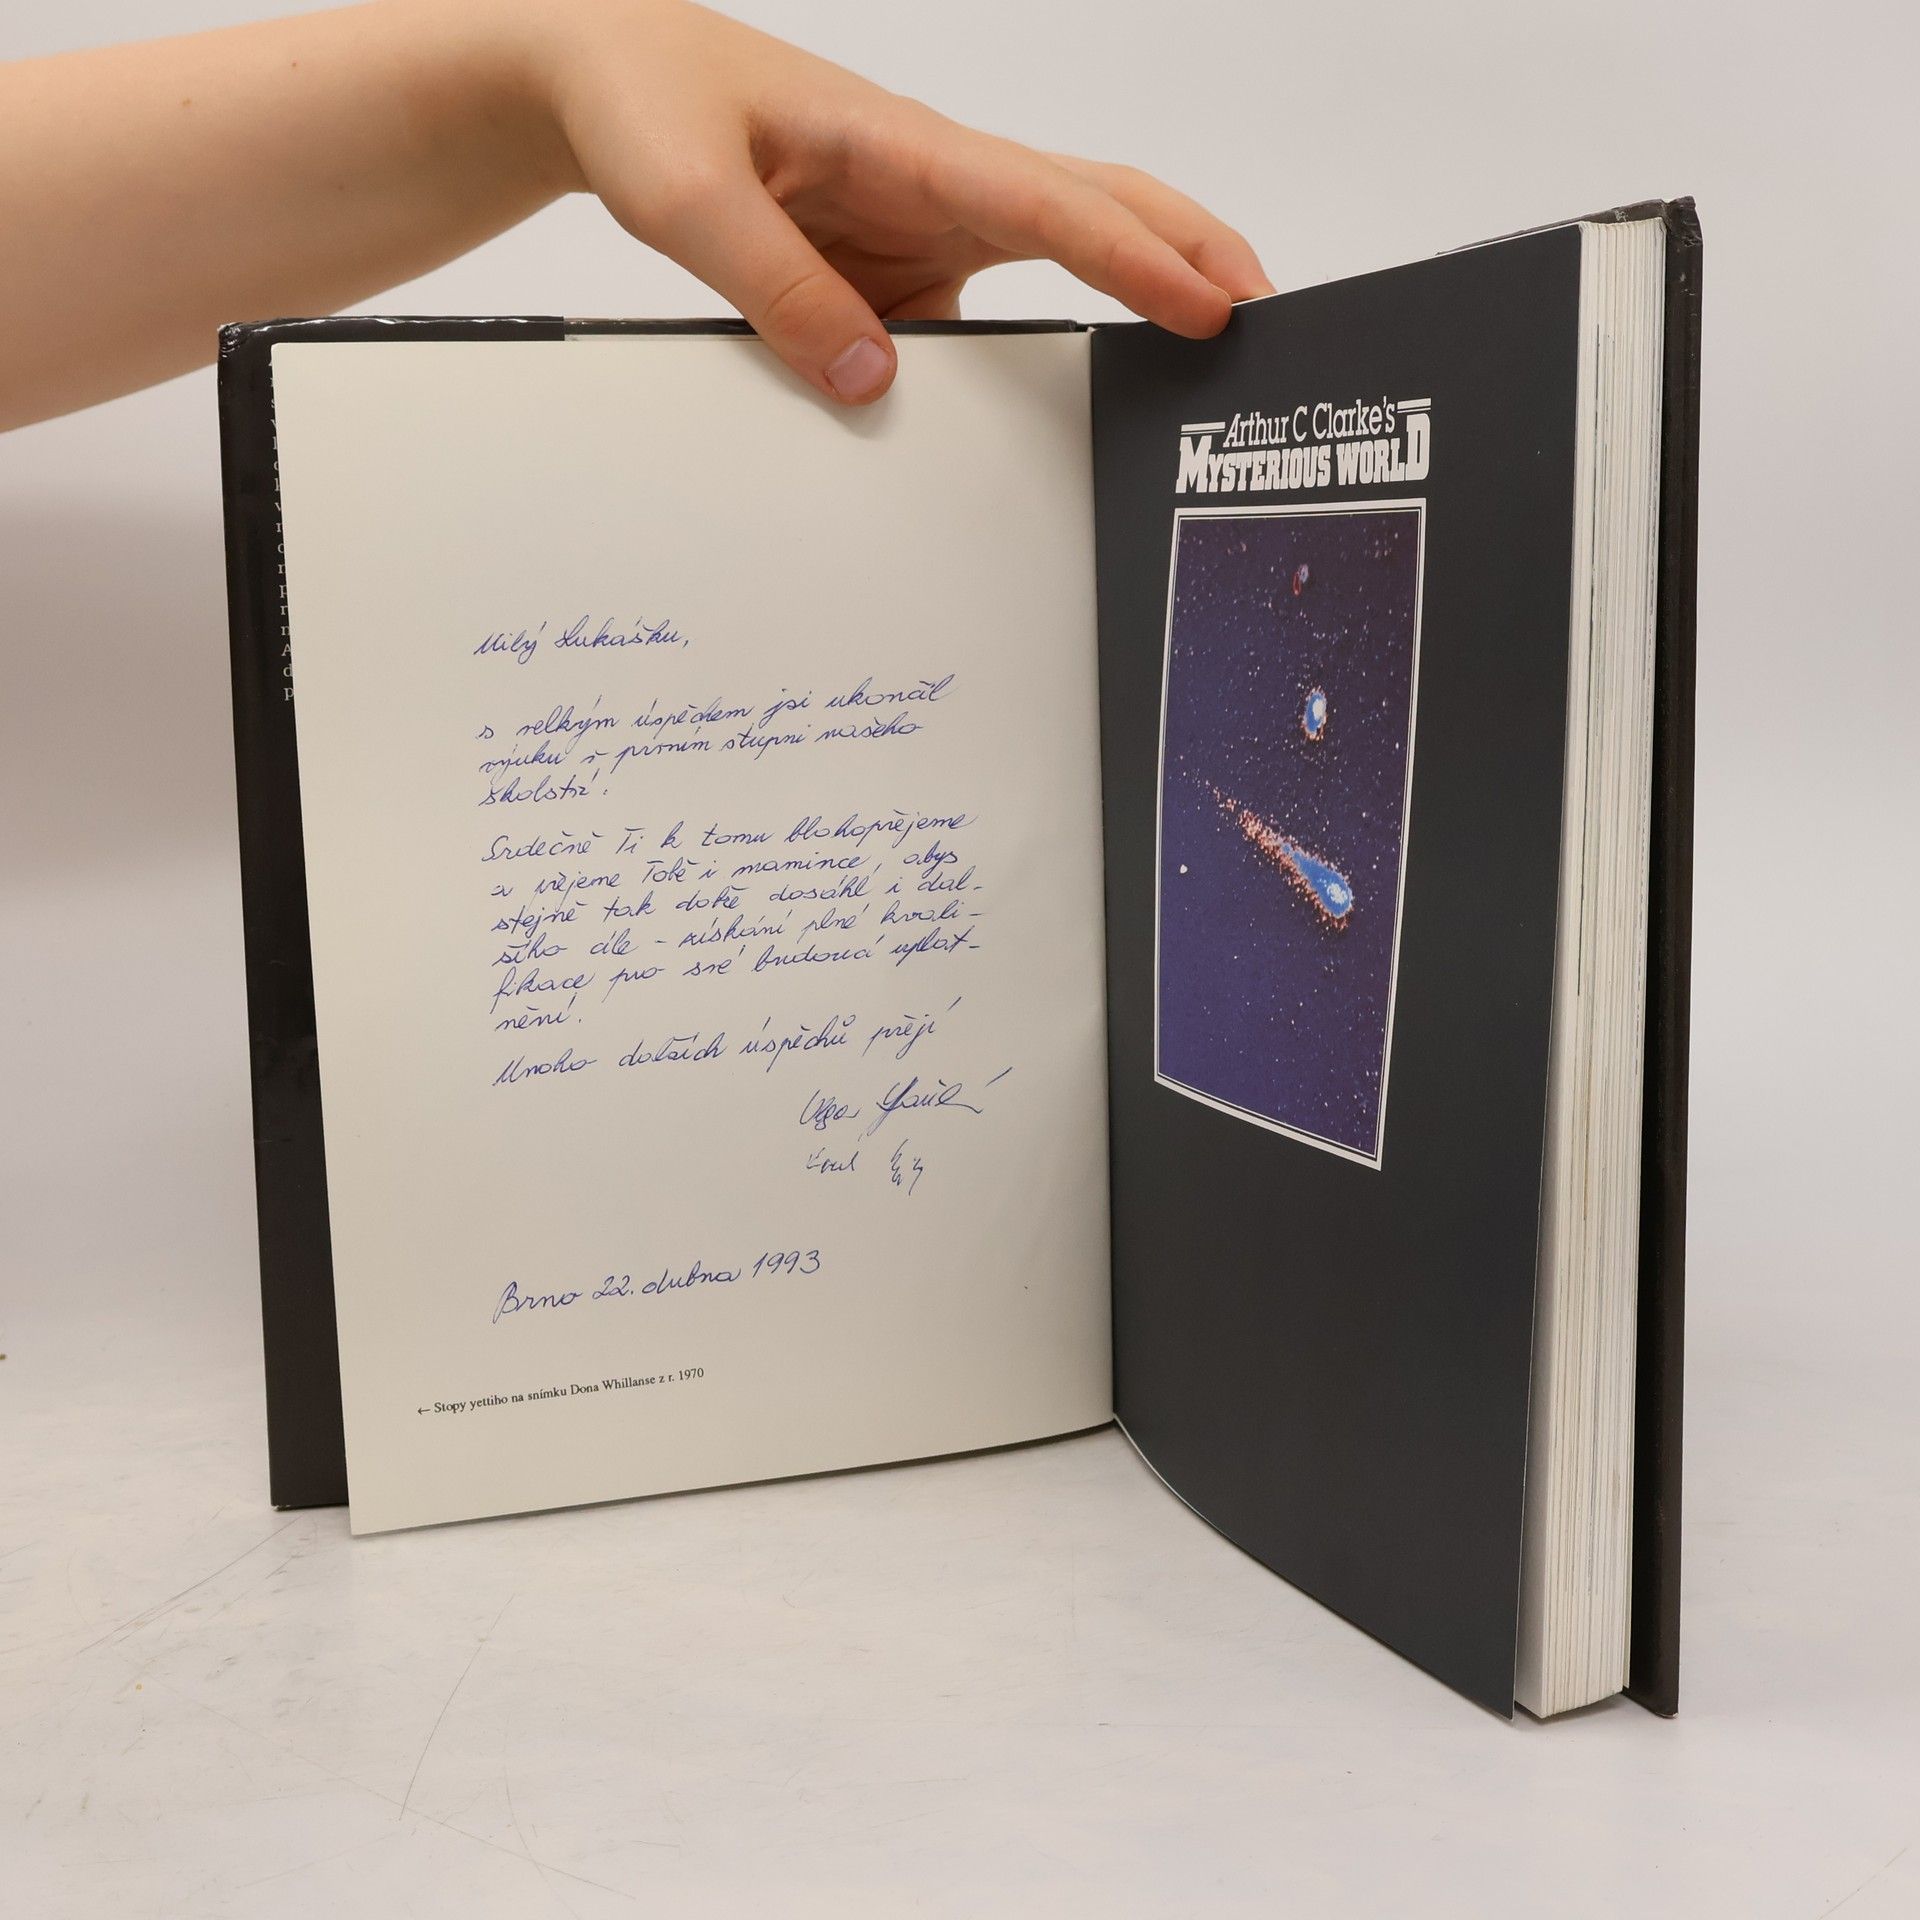 Milý Lukášku,
s velkým úspěchem jsi ukončil
výuku v prvním stupni našeho
školství.
Srdečně Ti k tomu blahopřejeme
a přejeme Tobě i mamince, abys
stejně tak dobře dosáhl i dal-
šího cíle - získání plné kvali-
fikace pro své budoucí uplat-
nění.
Mnoho dalších úspěchů přejí
Olga
Brno 22. dubna 1993
← Stopy yettiho na snímku Dona Whillanse z r. 1970
Arthur C Clarke's
MYSTERIOUS WORLD